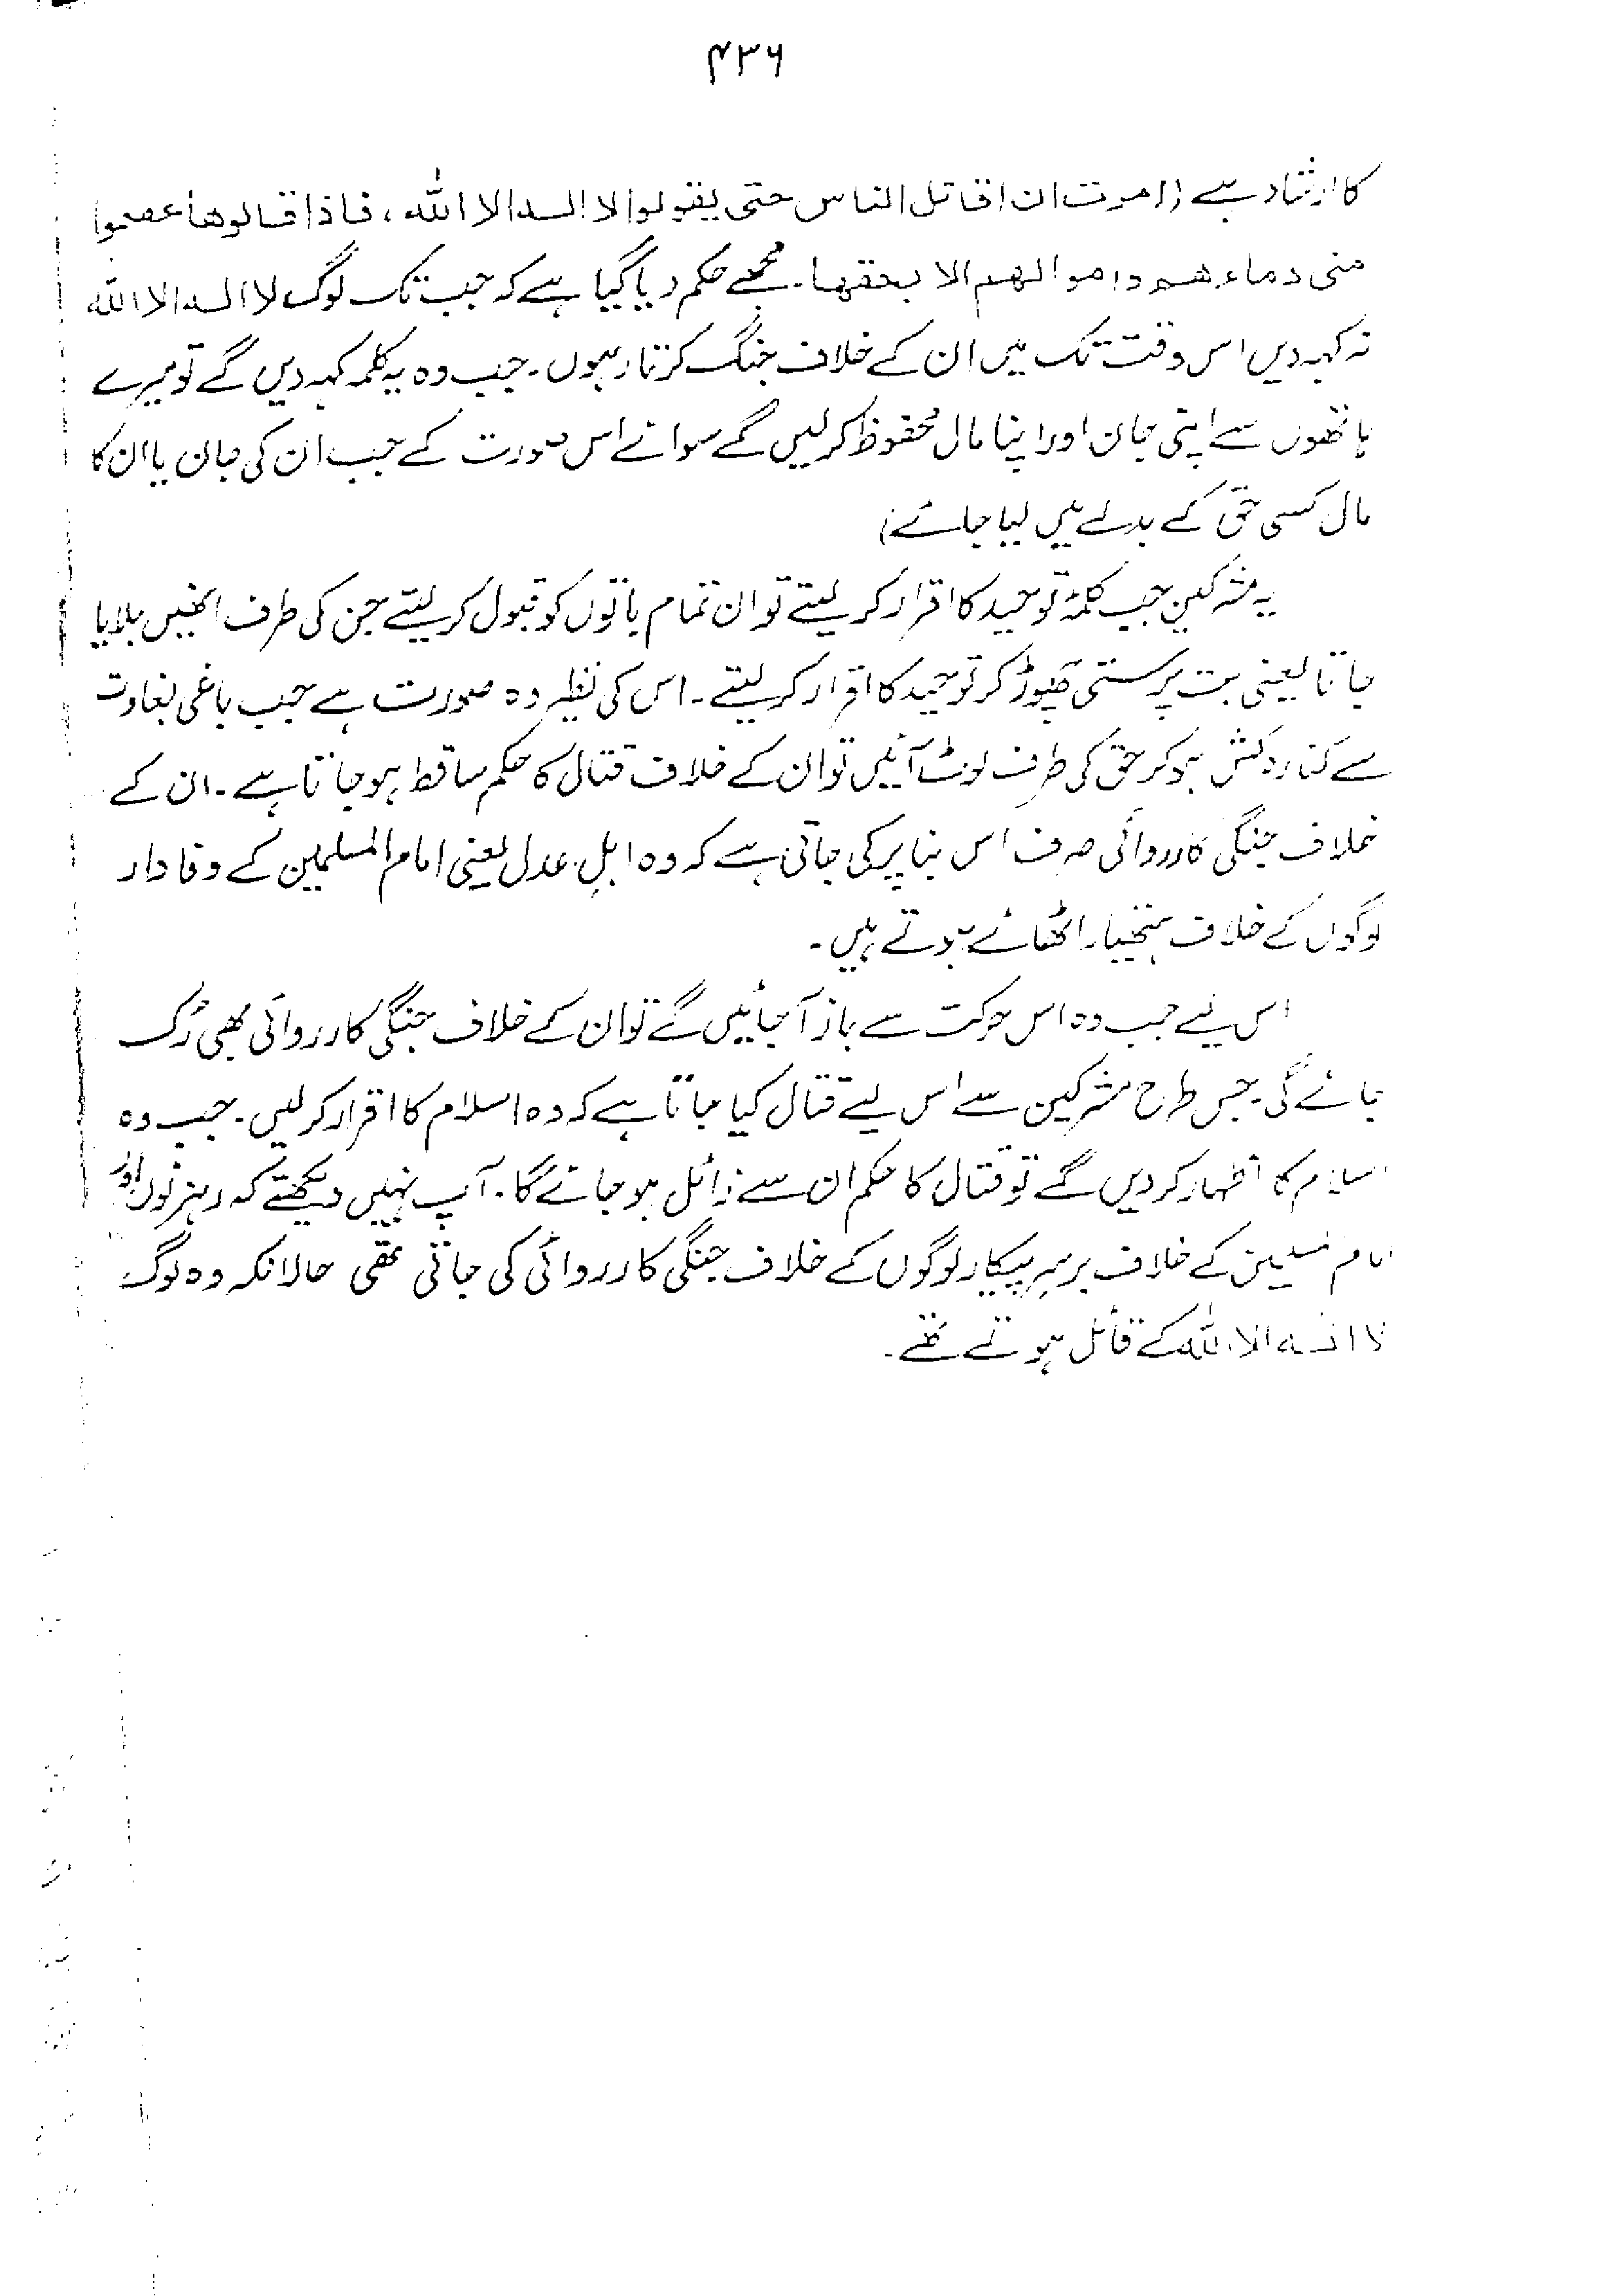 ۴۳۶
کا ارشاد ہے (امرت ان اقاتل الناس حتی یقولوا لا الٰہ الا اللہ، فاذا قالوھا عصموا
منی دماءھم واموالھم الا بحقھا۔ مجھے حکم دیا گیا ہے کہ جب تک لوگ لا الٰہ الا اللہ
نہ کہہ دیں اس وقت تک میں ان کے خلاف جنگ کرتا رہوں۔ جب وہ یہ کلمہ کہہ دیں گے تو میرے
ہاتھوں سے اپنی جان اور اپنا مال محفوظ کرلیں گے سوائے اس صورت کے جب ان کی جان یا ان کا
مال کسی حق کے بدلے میں لیا جائے)
یہ مشرکین جب کلمۂ توحید کا اقرار کر لیتے تو ان تمام باتوں کو قبول کر لیتے جن کی طرف انھیں بلایا
جاتا یعنی بت پرستی چھوڑ کر توحید کا اقرار کر لیتے۔ اس کی نظیر وہ صورت ہے جب باغی بغاوت
سے کنارہ کش ہو کر حق کی طرف لوٹ آئیں تو ان کے خلاف قتال کا حکم ساقط ہو جاتا ہے۔ ان کے
خلاف جنگی کارروائی صرف اس بنا پر کی جاتی ہے کہ وہ اہلِ عدل یعنی امام المسلمین کے وفادار
لوگوں کے خلاف ہتھیار اٹھائے ہوتے ہیں۔
اس لیے جب وہ اس حرکت سے باز آ جائیں گے تو ان کے خلاف جنگی کارروائی بھی رُک
جائے گی۔ جس طرح مشرکین سے اس لیے قتال کیا جاتا ہے کہ وہ اسلام کا اقرار کرلیں۔ جب وہ
اسلام کا اظہار کر دیں گے تو قتال کا حکم ان سے زائل ہو جائے گا۔ آپ نہیں دیکھتے کہ رہزنوں اور
امام مسلمین کے خلاف برسرِ پیکار لوگوں کے خلاف جنگی کارروائی کی جاتی تھی حالانکہ وہ لوگ
لا الٰہ الا اللہ کے قائل ہوتے تھے۔